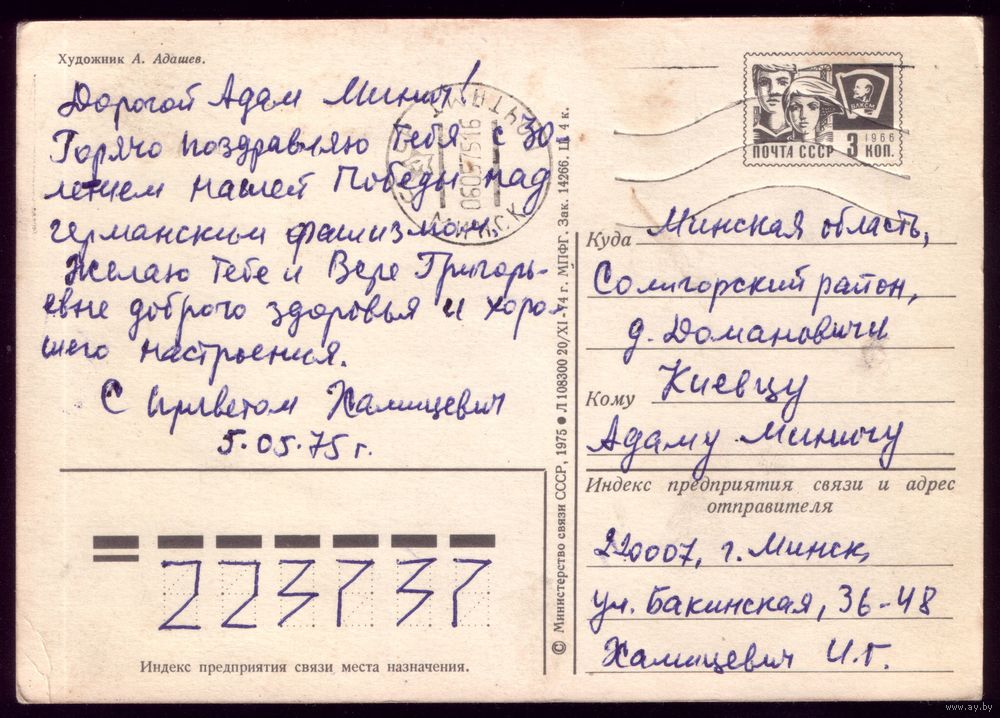 Художник А. Адашев.
Дорогой Адам Минич!
Горячо поздравляю тебя с 30
летием нашей Победы над
германским фашизмом.
Желаю тебе и Вере Григорь-
евне доброго здоровья и хоро-
шего настроения.
С приветом Хамицевич
5.05.75 г.
ПОЧТА СССР 3 КОП.
1966
ВЛКСМ
МИНСК
060575 16
Куда Минская область,
Солигорский район,
д. Домановичи
Кому Киевцу
Адаму Миничу
Индекс предприятия связи и адрес
отправителя
220007, г. Минск,
ул. Бакинская, 36-48
Хамицевич И.Г.
© Министерство связи СССР, 1975 ● Л 108300 20/XI-74 г. МПФГ. Зак. 14266. Ц. 4 к.
223737
Индекс предприятия связи места назначения.
www.ay.by